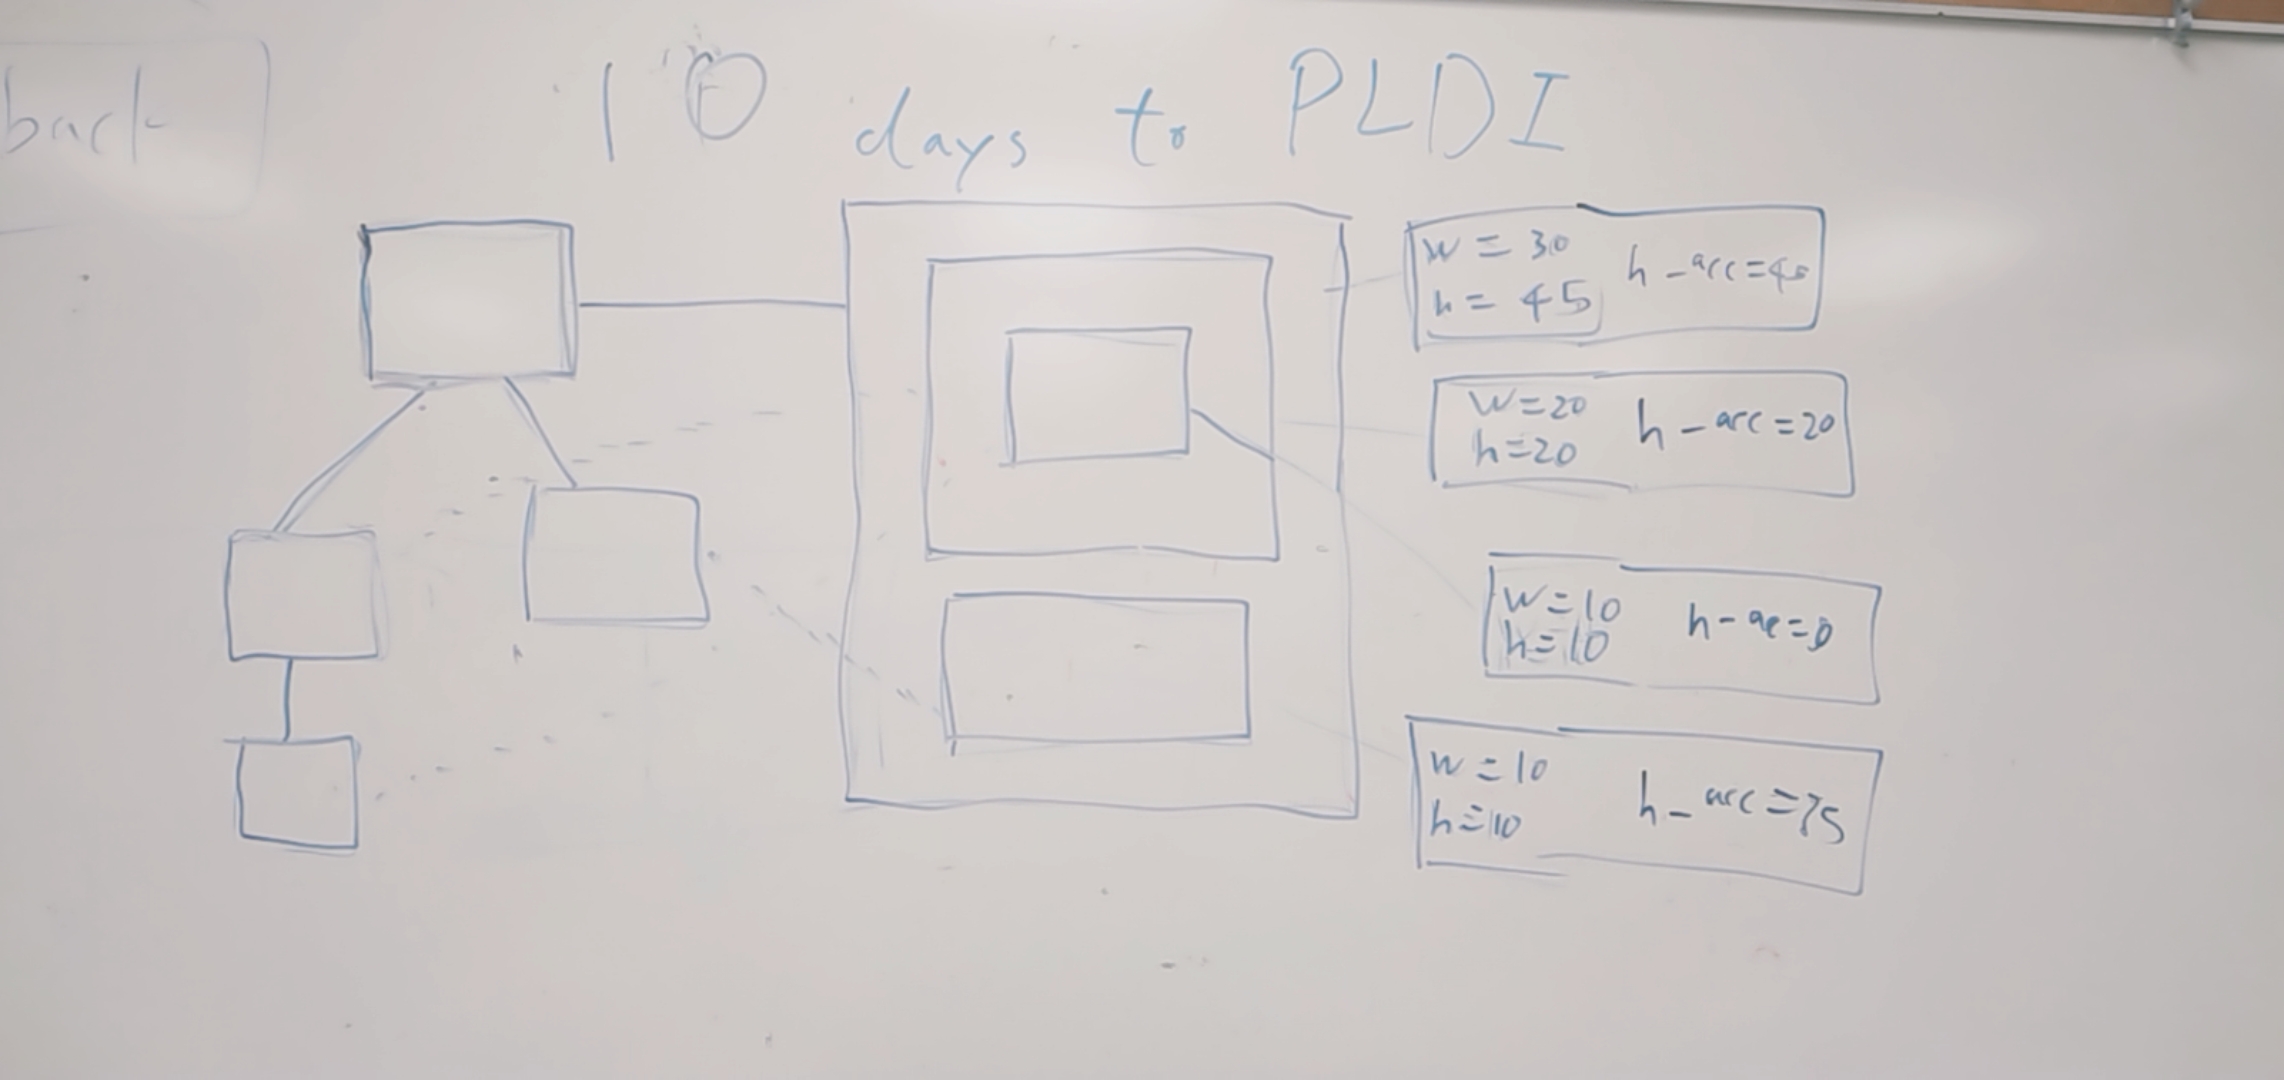 back
10 days to PLDI
w = 30
h = 45
h-acc=45
w=20
h=20
h-acc=20
w=10
h=10
w=10
h=10
h-acc=75